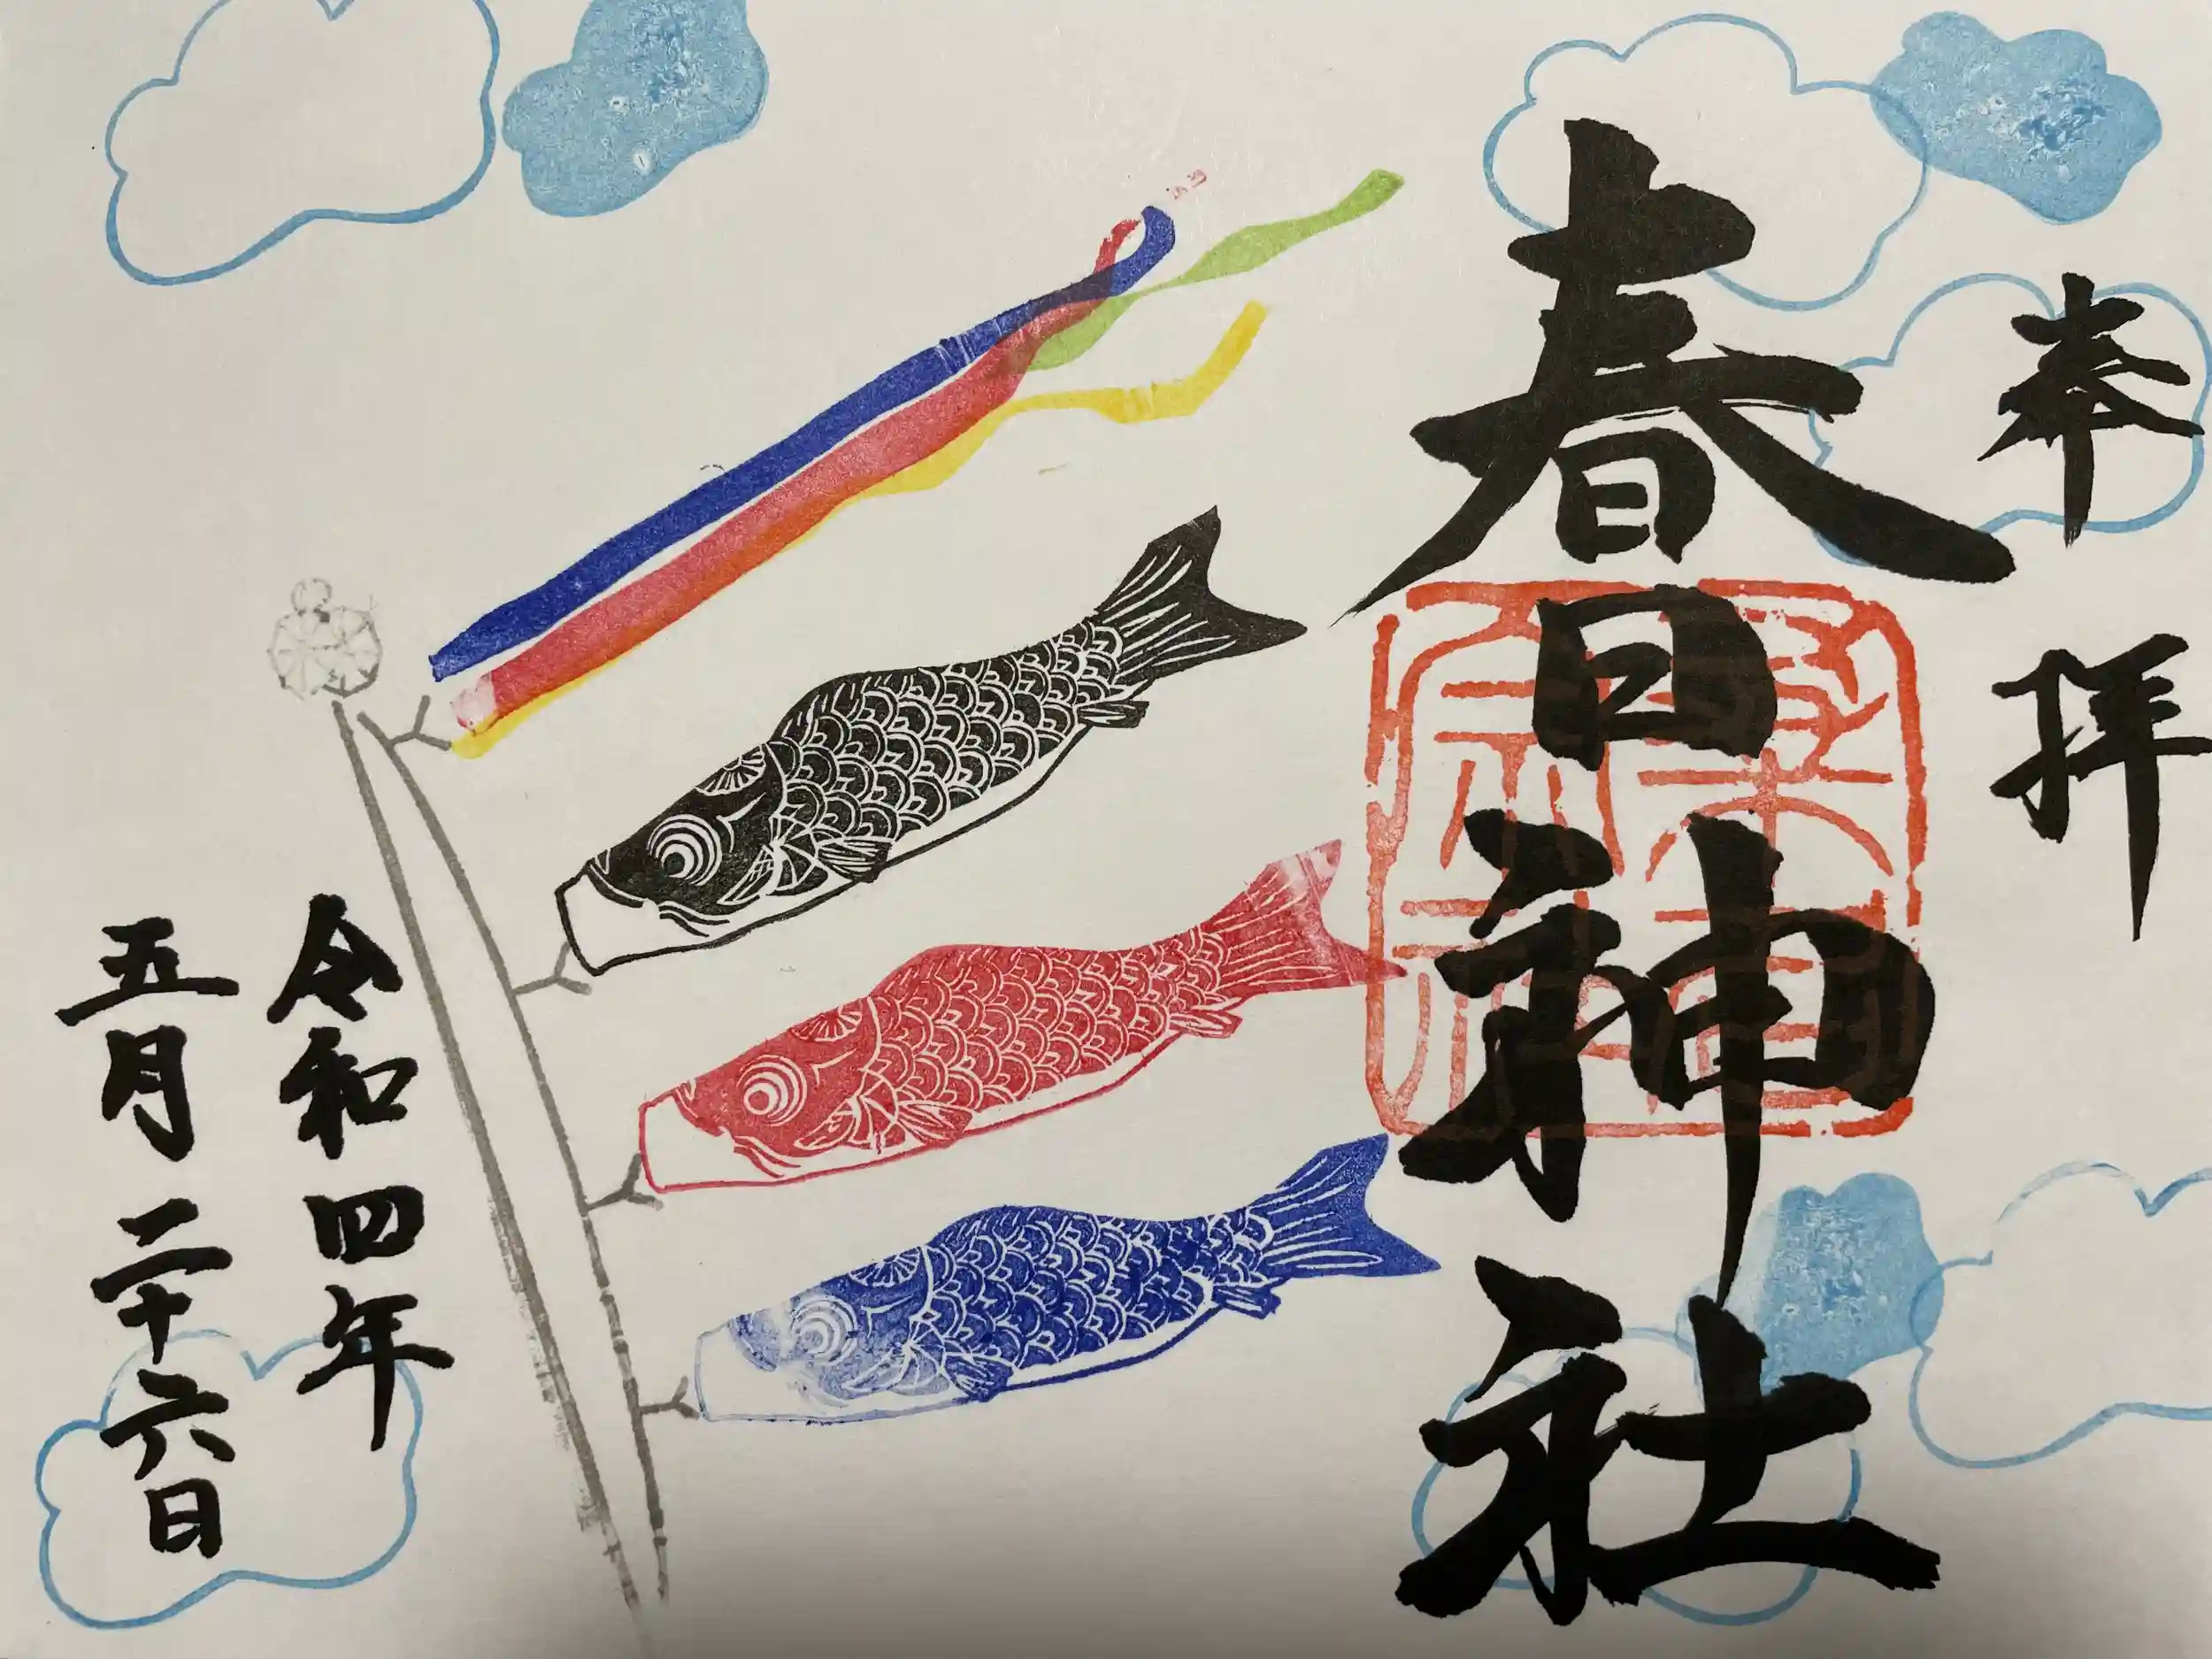 奉拝
春日神社
令和四年
五月二十六日